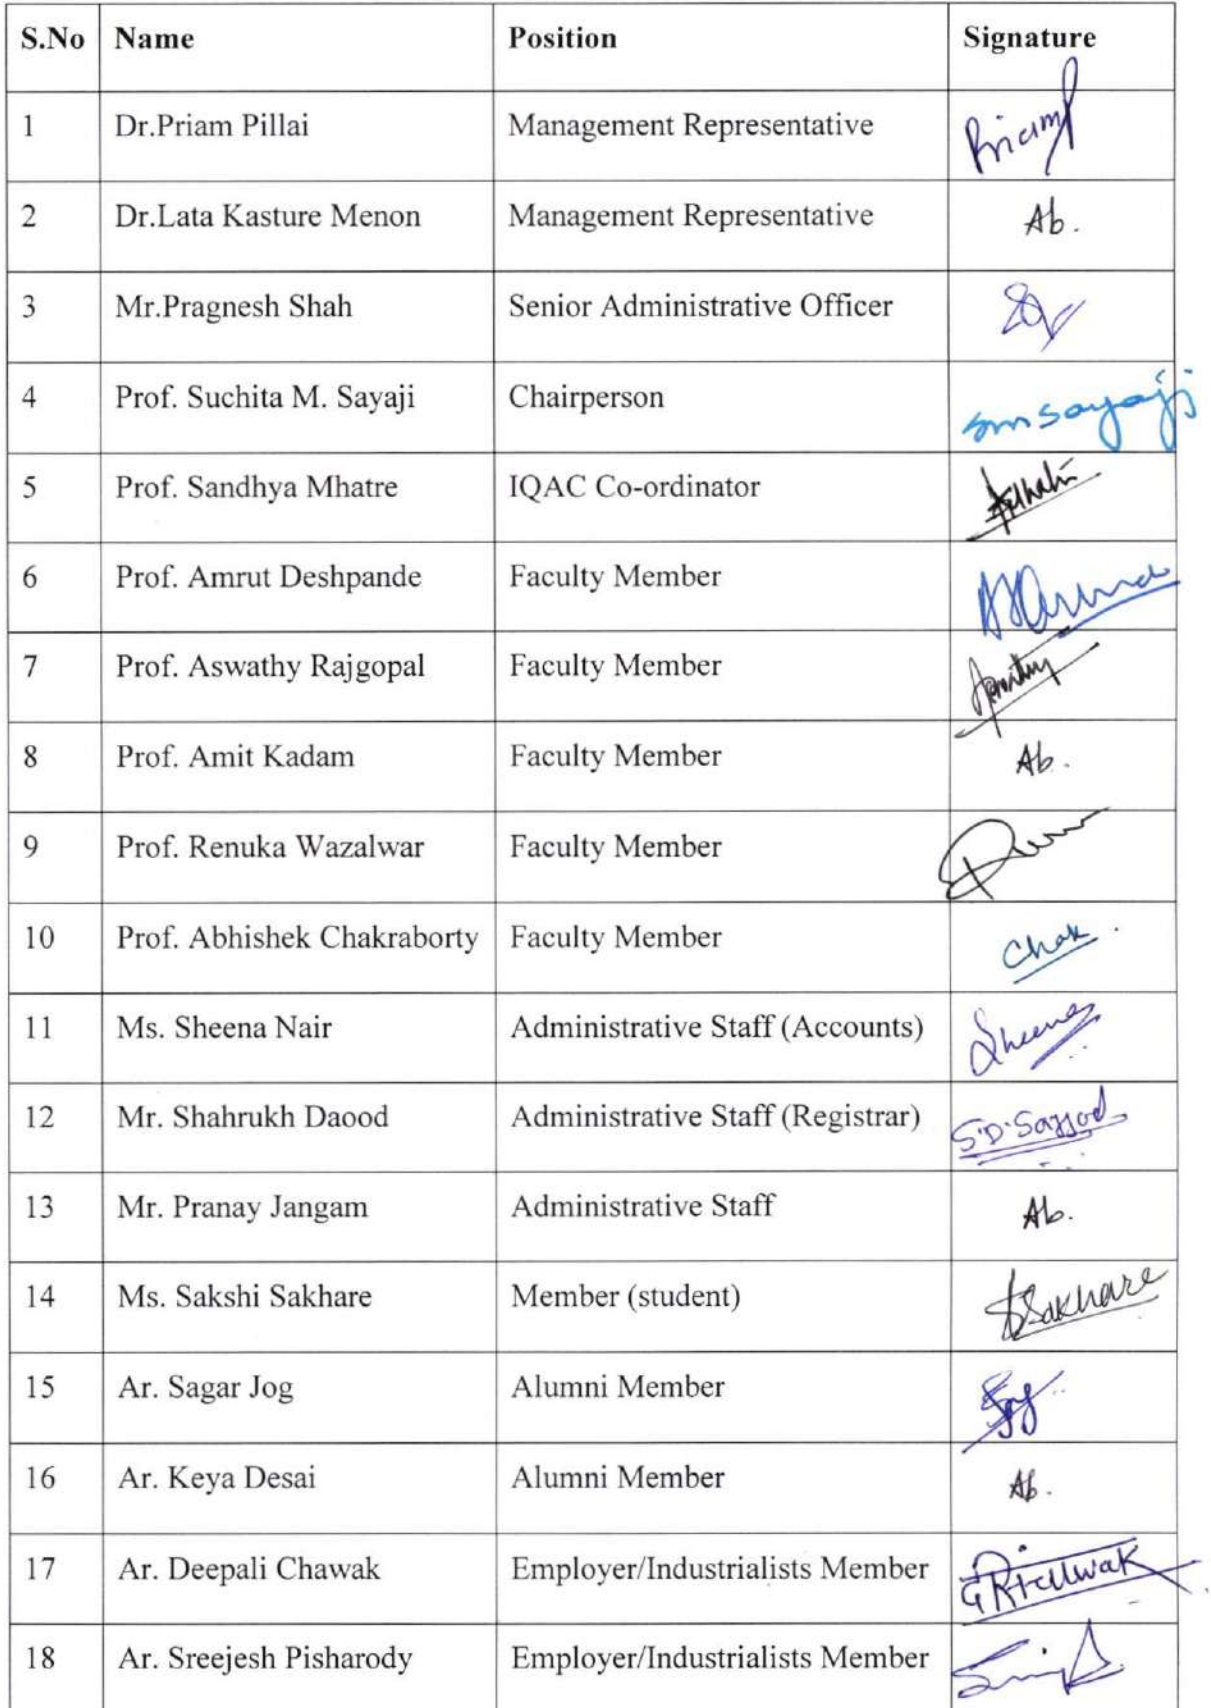 S.No Name Position Signature
1 Dr.Priam Pillai Management Representative Priam
2 Dr.Lata Kasture Menon Management Representative Ab.
3 Mr.Pragnesh Shah Senior Administrative Officer
4 Prof. Suchita M. Sayaji Chairperson smsayaji
5 Prof. Sandhya Mhatre IQAC Co-ordinator
6 Prof. Amrut Deshpande Faculty Member
7 Prof. Aswathy Rajgopal Faculty Member
8 Prof. Amit Kadam Faculty Member Ab.
9 Prof. Renuka Wazalwar Faculty Member
10 Prof. Abhishek Chakraborty Faculty Member Chak.
11 Ms. Sheena Nair Administrative Staff (Accounts) Sheena
12 Mr. Shahrukh Daood Administrative Staff (Registrar) S.D.Sayyod
13 Mr. Pranay Jangam Administrative Staff Ab.
14 Ms. Sakshi Sakhare Member (student) SSakhare
15 Ar. Sagar Jog Alumni Member
16 Ar. Keya Desai Alumni Member Ab.
17 Ar. Deepali Chawak Employer/Industrialists Member
18 Ar. Sreejesh Pisharody Employer/Industrialists Member